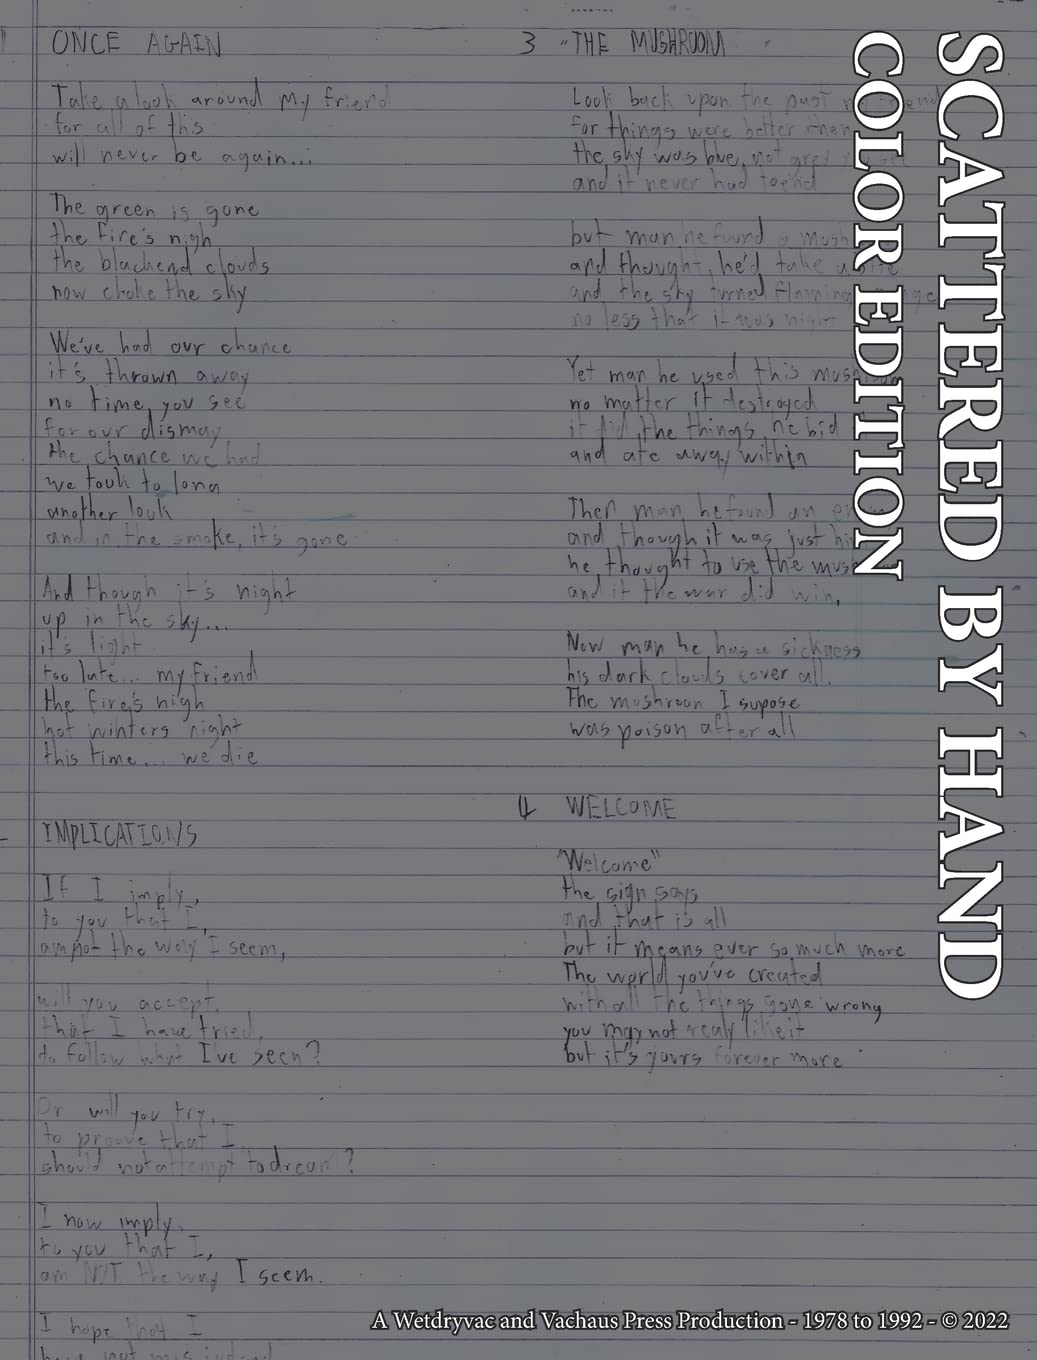 ONCE AGAIN
Take a look around my friend
for all of this
will never be again...
The green is gone
the fire's nigh
the blackend clouds
now choke the sky
We've had our chance
it's thrown away
no time, you see
for our dismay
the chance we had
we took to long
another look
and in the smoke, it's gone
And though it's night
up in the sky...
it's light
too late... my friend
the fire's nigh
hot winters night
this time... we die
IMPLICATIONS
If I imply,
to you that I,
am not the way I seem,
will you accept,
that I have tried,
to follow what I've seen?
Or will you try,
to proove that I,
should not attempt to dream?
I now imply,
to you that I,
am NOT the way I seem.
I hope that I
have not misjudged
3 "THE MUSHROOM
Look back upon the past my friend
for things were better then
the sky was blue, not grey
and it never had to end
but man he found a mush
and thought, he'd take a bite
and the sky turned flaming
no less that it was night
Yet man he used this mushroom
no matter it destroyed
it did the things he bid
and ate away within
Then man he found an
and though it was just hi
he thought to use the mush
and it the war did win,
Now man he has a sickness
his dark clouds cover all.
The mushroom I supose
was poison after all
4 WELCOME
"Welcome"
the sign says
and that is all
but it means ever so much more
The world you've created
with all the things gone wrong
you may not realy like it
but it's yours forever more
SCATTERED BY HAND
COLOR EDITION
A Wetdryvac and Vachaus Press Production - 1978 to 1992 - © 2022